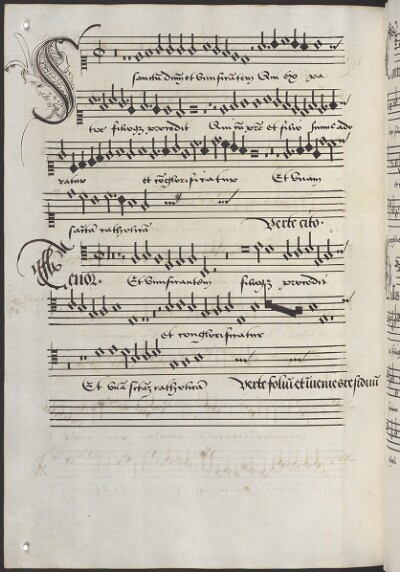 sanctu dnm et vivificantem Qui ex pa
tre filioqz procedit Qui cu pre et filio simul ado
ratur et conglorificatur Et Vnam
sancta catholica Verte cito.
Tenor. Et vivificantem filioqz procedit
et conglorificatur
Et Vna sctaz catholica Verte foliu et invenies residuu